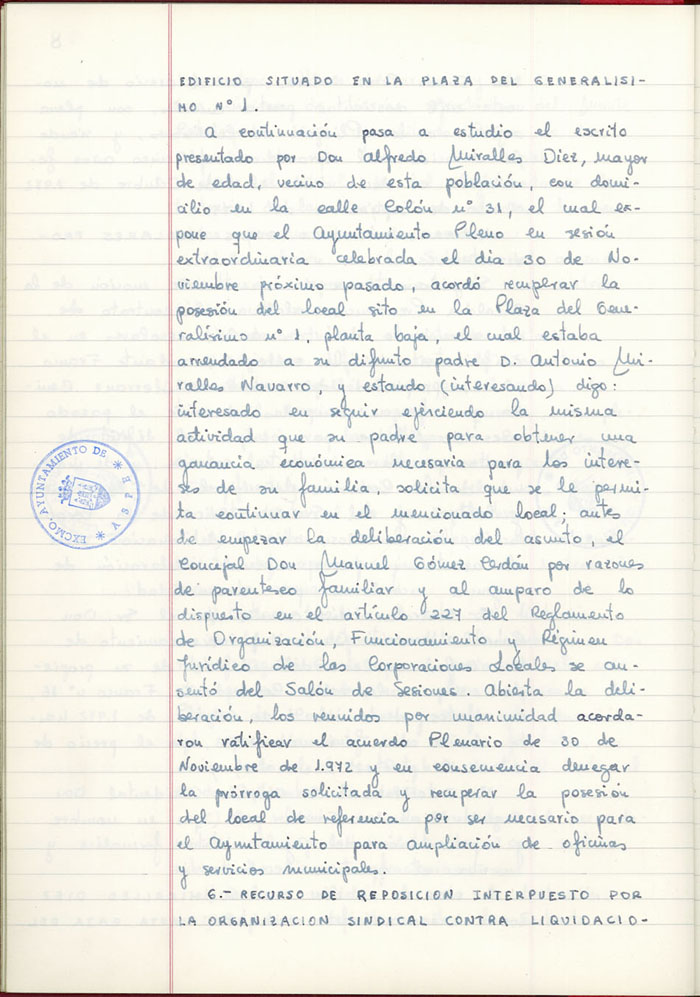 EDIFICIO SITUADO EN LA PLAZA DEL GENERALISI-
MO Nº 1.
A continuación pasa a estudio el escrito
presentado por Don Alfredo Miralles Diez, mayor
de edad, vecino de esta población, con domi-
cilio en la calle Colón nº 31, el cual ex-
pone que el Ayuntamiento Pleno en sesión
extraordinaria celebrada el dia 30 de No-
viembre próximo pasado, acordó recuperar la
posesión del local sito en la Plaza del Gene-
ralísimo nº 1, planta baja, el cual estaba
arrendado a su difunto padre D. Antonio Mi-
ralles Navarro, y estando (interesando) digo:
interesado en seguir ejerciendo la misma
actividad que su padre para obtener una
ganancia económica necesaria para los intere-
ses de su familia, solicita que se le permi-
ta continuar en el mencionado local; antes
de empezar la deliberación del asunto, el
Concejal Don Manuel Gómez Cerdán por razones
de parentesco familiar y al amparo de lo
dispuesto en el artículo 227 del Reglamento
de Organización, Funcionamiento y Régimen
Jurídico de las Corporaciones Locales se au-
sentó del Salón de Sesiones. Abierta la deli-
beración, los reunidos por unanimidad acorda-
ron ratificar el acuerdo Plenario de 30 de
Noviembre de 1.972 y en consecuencia denegar
la prórroga solicitada y recuperar la posesión
del local de referencia por ser necesario para
el Ayuntamiento para ampliación de oficinas
y servicios municipales.
6.- RECURSO DE REPOSICION INTERPUESTO POR
LA ORGANIZACION SINDICAL CONTRA LIQUIDACIO-
EXCMO. AYUNTAMIENTO DE * ASPE *